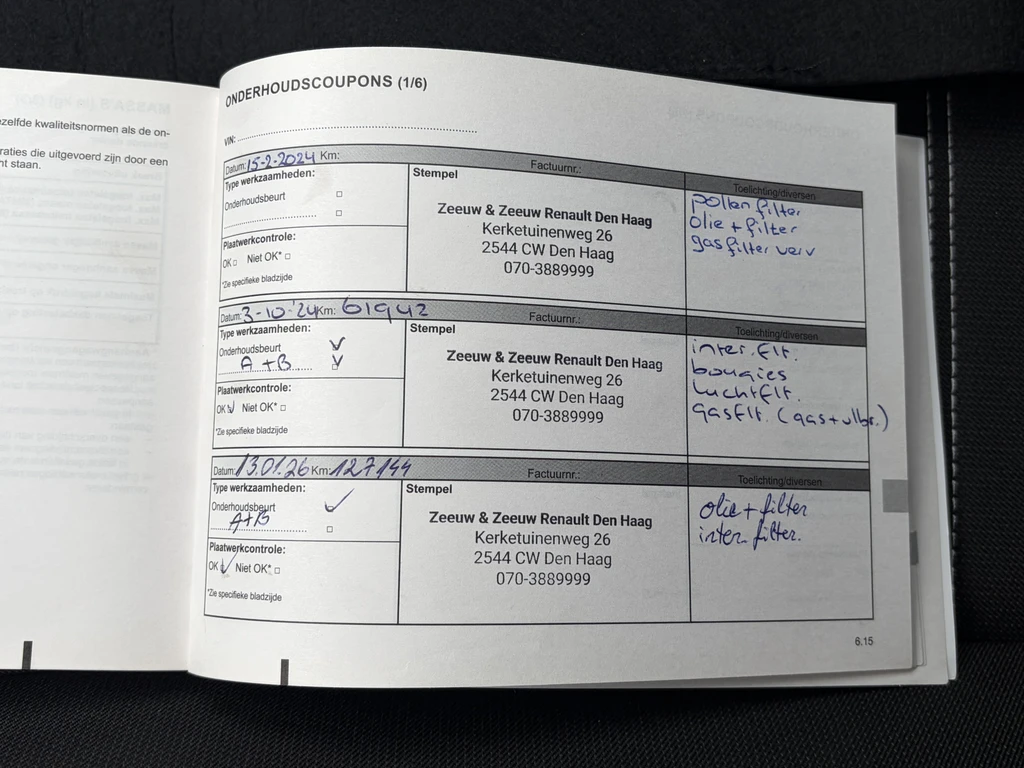 zelfde kwaliteitsnormen als de on-
raties die uitgevoerd zijn door een
nt staan.
ONDERHOUDSCOUPONS (1/6)
VIN:
Datum: 15-2-2024 Km: Factuurnr.: Toelichting/diversen
Type werkzaamheden:
Onderhoudsbeurt
Plaatwerkcontrole:
OK Niet OK*
*Zie specifieke bladzijde
Stempel
Zeeuw & Zeeuw Renault Den Haag
Kerketuinenweg 26
2544 CW Den Haag
070-3889999
pollen filter
olie + filter
gasfilter verv
Datum: 3-10-'24 Km: 61942 Factuurnr.: Toelichting/diversen
Type werkzaamheden:
Onderhoudsbeurt
A+B
Plaatwerkcontrole:
OK Niet OK*
*Zie specifieke bladzijde
Stempel
Zeeuw & Zeeuw Renault Den Haag
Kerketuinenweg 26
2544 CW Den Haag
070-3889999
inter. flt.
bougies
luchtflt.
gasflt. (gas+vlbr.)
Datum: 13.01.26 Km: 127144 Factuurnr.: Toelichting/diversen
Type werkzaamheden:
Onderhoudsbeurt
A+B
Plaatwerkcontrole:
OK Niet OK*
*Zie specifieke bladzijde
Stempel
Zeeuw & Zeeuw Renault Den Haag
Kerketuinenweg 26
2544 CW Den Haag
070-3889999
olie + filter
inter. filter.
6.15